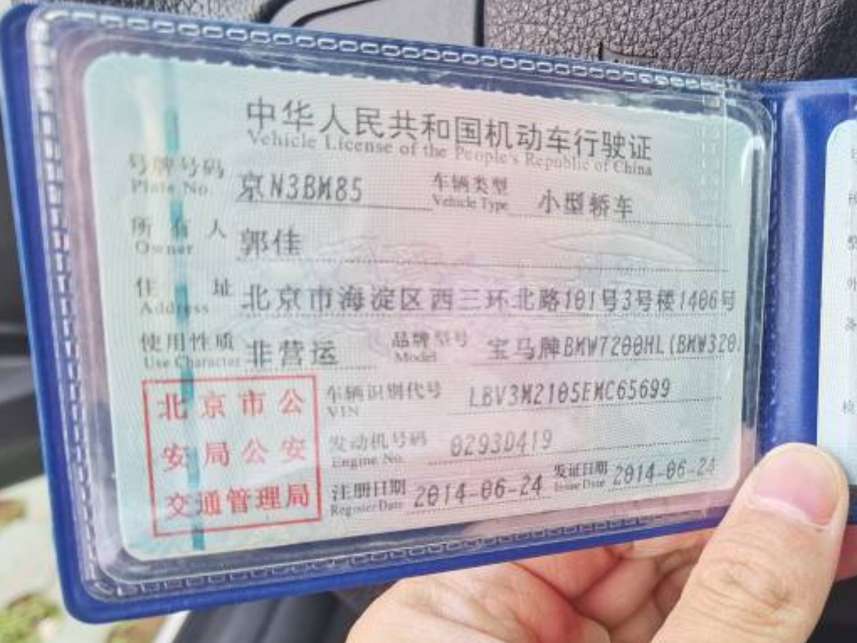 中华人民共和国机动车行驶证
Vehicle License of the People's Republic of China
号牌号码 京N3BM85 车辆类型 小型轿车
Plate No. Vehicle Type
所有人 郭佳
Owner
住址 北京市海淀区西三环北路101号3号楼1406号
Address
使用性质 非营运 品牌型号 宝马牌BMW7200HL(BMW320.
Use Character Model
北京市公 车辆识别代号 LBV3M2105EMC65699
VIN
安局公安 发动机号码 0293D419
Engine No.
交通管理局 注册日期 2014-06-24 发证日期 2014-06-24
Register Date Issue Date